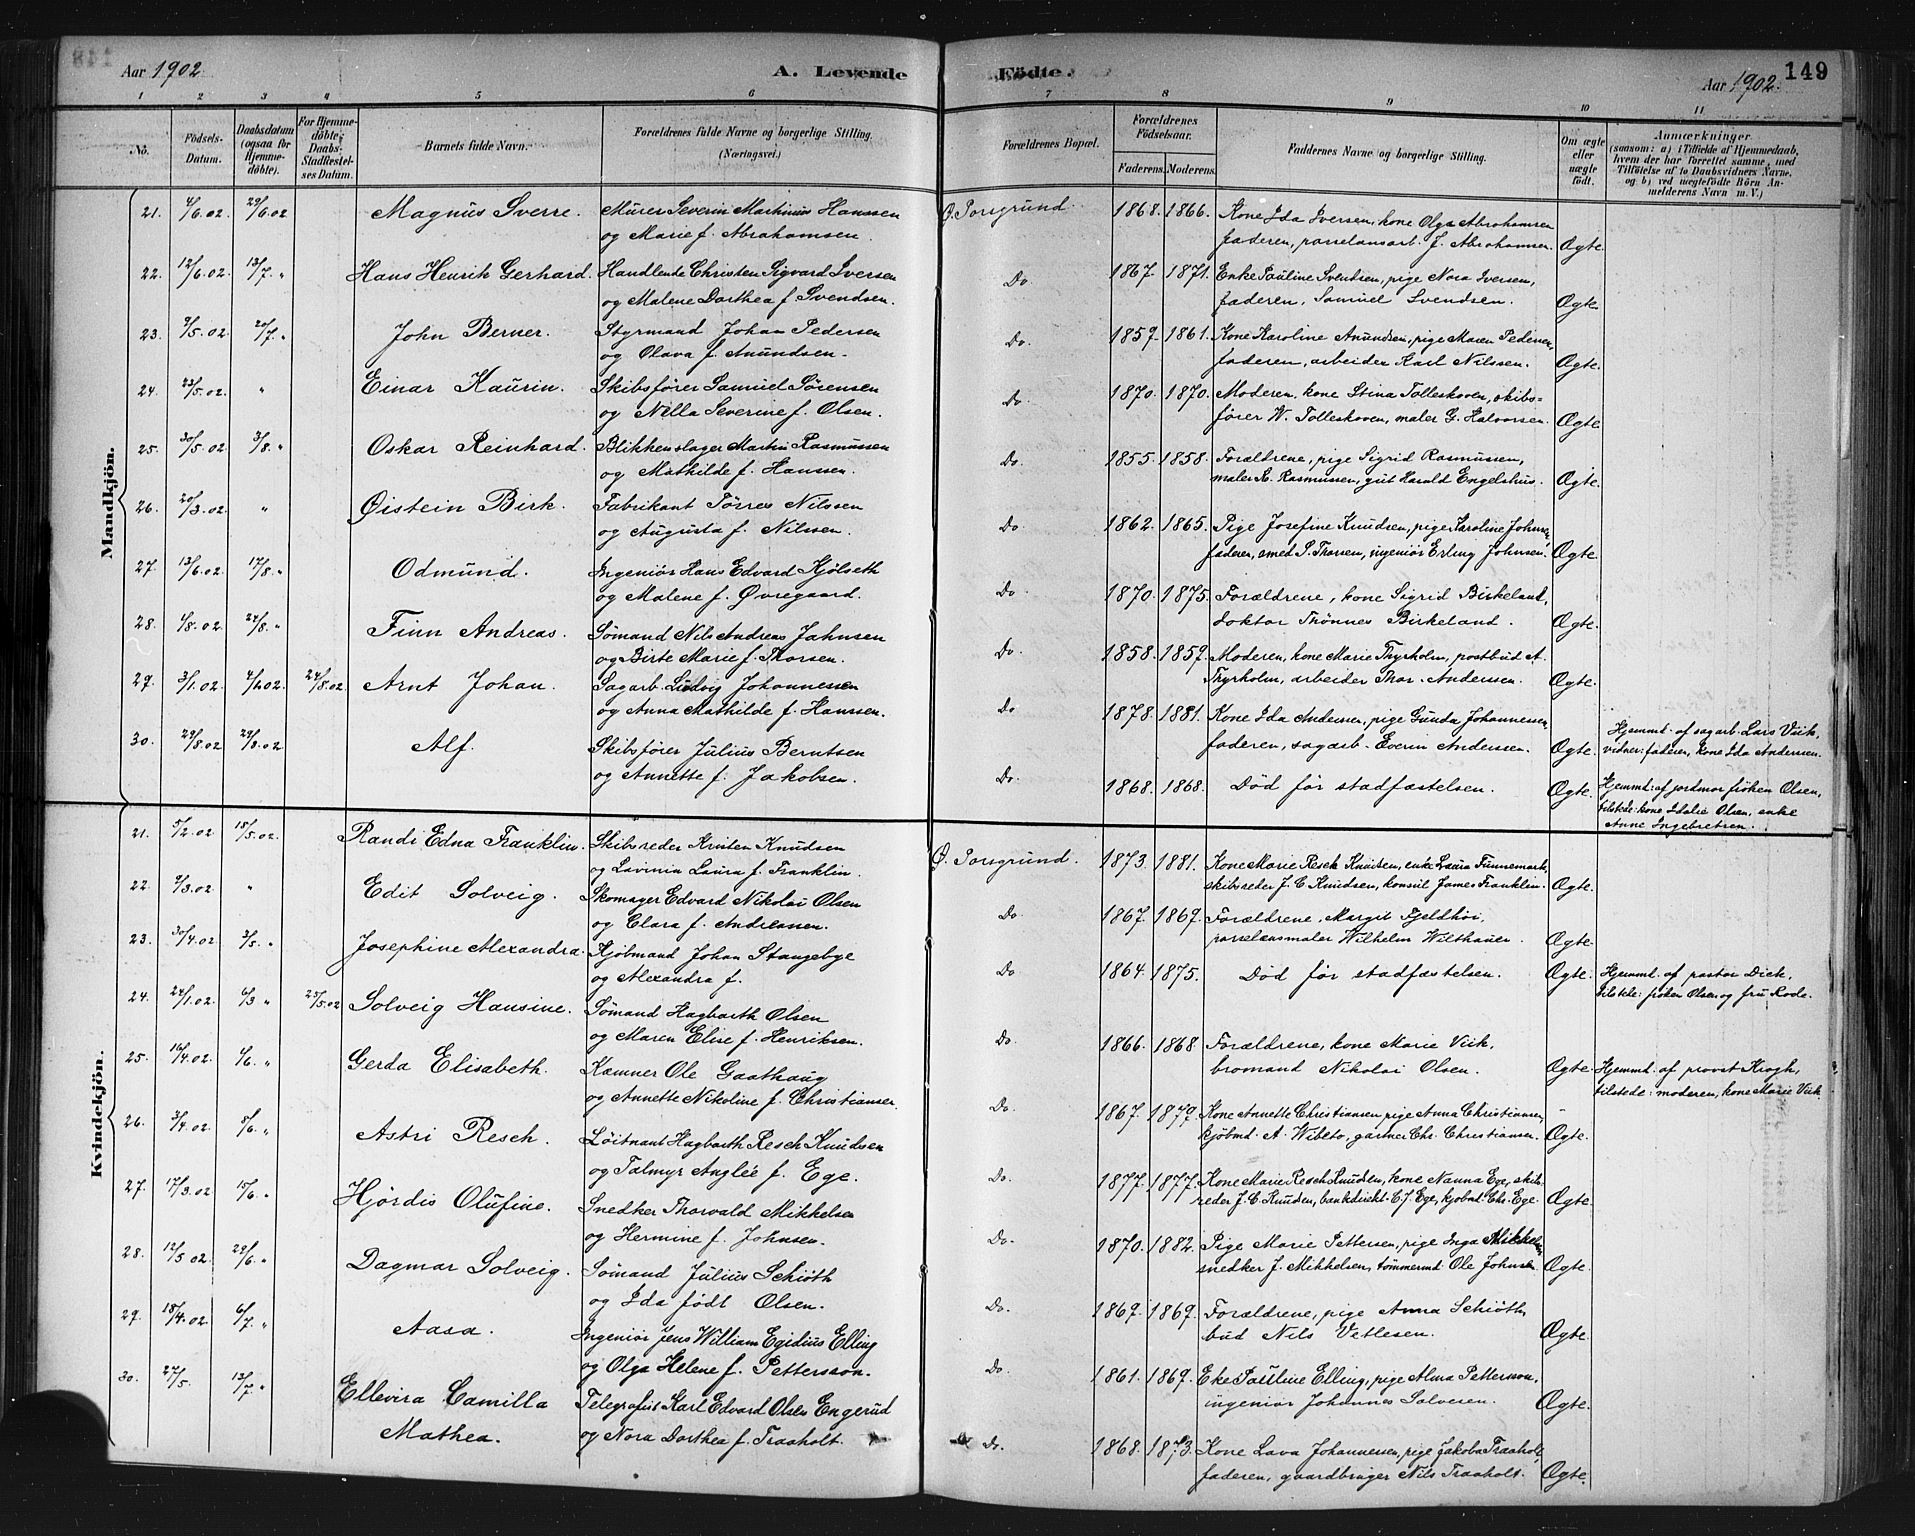 Aar 1902 A. Levende Fødte. Aar 1902. 149
1 2 3 4 5 6 7 8 9 10 11
No. Fødsels-Datum. Daabsdatum (ogsaa for Hjemmedøbte). For Hjemmedøbte; Daabs-Stadfæstelses Datum. Barnets fulde Navn. Forældrenes fulde Navne og borgerlige Stilling. (Næringsvei.) Forældrenes Bopæl. Forældrenes Fødselsaar. Faderens. Moderens. Faddernes Navne og borgerlige Stilling. Om ægte eller uægte født. Anmærkninger (saasom: a) i Tilfælde af Hjemmedaab, hvem der har forrettet samme, med Tilføielse af to Daabsvidners Navne, og b) ved uægtefødte Børn Anmelderens Navn m. V.)
Mandkjön.
21. 4/6.02 29/6.02 Magnus Sverre. Murer Severin Martinius Hanssen Ø. Porsgrund. 1868. 1866. Kone Ida Iversen, kone Olga Abrahamsen
og Marie f. Abrahamsen. faderen, porselansarb. J. Abrahamsen. Ægte.
22. 12/6.02. 13/7 " Hans Henrik Gerhard. Handlende Christen Sigvard Iversen Do 1867. 1871. Enke Pauline Svendsen, pige Nora Iversen,
og Malene Dorthea f. Svendsen. faderen, Samuel Svendsen. Ægte
23. 9/5.02. 20/7 " John Berner. Styrmand Johan Pedersen Do. 1859. 1861. Kone Karoline Anundsen, pige Maren Pedersen,
og Olava f. Anundsen. faderen, arbeider Karl Nilssen. Ægte.
24. 23/5.02. " Einar Kaurin. Skibsfører Samuel Sørensen Do. 1870. 1870. Moderen, kone Stina Tolleskoven, skibs=
og Nella Severine f. Olsen. fører W. Tolleskoven, maler G. Halvorsen. Ægte
25. 30/5.02 3/8 " Oskar Reinhard. Blikkenslager Martin Rasmussen Do. 1855. 1858. Forældrene, pige Sigrid Rasmussen,
og Mathilde f. Hansen. maler R. Rasmussen, gut Harald Engelshus. Ægte.
26. 20/3.02 " Øistein Birk. Fabrikant Tørres Nilssen Do. 1862. 1865. Pige Josefine Knudsen, pige Karoline Johnsen,
og Augusta f. Nilssen. faderen, smed P. Thorsen, ingeniør Erling Johnsen. Ægte.
27. 13/6.02 17/8 " Odmund. Ingeniør Hans Edvard Kjølseth Do. 1870. 1875. Forældrene, kone Sigrid Birkeland,
og Malene f. Øvregaard. doktor Thønnes Birkeland. Ægte.
28. 4/8.02. 24/8 " Finn Andreas. Sømand Nils Andreas Jahnsen Do. 1858. 1859. Moderen, kone Marie Thyrholm, postbud A.
og Birte Marie f. Thorsen. Thyrholm, arbeider Thor. Andersen. Ægte.
29. 3/1.02 24/8.02 Arnt Johan. Sagarb. Ludvig Johannessen Do 1878. 1881. Kone Ida Andersen, pige Gunda Johannessen, Hjemmd. af sagarb. Lars Viik,
og Anna Mathilde f. Hanssen. faderen, sagarb. Everin Anderssen. Ægte. vidner: faderen, kone Ida Anderssen.
30. 29/8.02 29/8.02 Alf. Skibsfører Julius Berntsen Do. 1868. 1868. Død før stadfæstelsen. Ægte. Hjemmd: af jordmor frøken Olsen,
og Annette f. Jakobsen. tilstede: kone Idalie Olsen, enke
Anne Ingebretsen.
Kvindekjön.
21. 5/2.02 18/5.02. Randi Edna Franklin. Skibsreder Kristen Knudsen Ø. Porsgrund. 1873. 1881. Kone Marie Resch Knudsen, enke Laura Funnemark
og Lavinia Laura f. Franklin. skibsreder J. C. Knudsen, konsul James Franklin. Ægte.
22. 9/3.02 " Edit Solveig. Skomager Edvard Nikolai Olsen Do 1867. 1869. Forældrene, Margit Fjeldhøi,
og Clara f. Andreassen. porselænsmaler Wilhelm Wilthauer. Ægte.
23. 30/4.02 3/5 " Josephine Alexandra. Kjøbmand Johan Stangebye Do 1864. 1875. Død før stadfæstelsen. Ægte. Hjemmd. af pastor Dick,
og Alexandra f. tilstede: frøken Olsen og fru Rode.
24. 24/1.02 6/3 " 25/5.02 Solveig Hansine. Sømand Hagbarth Olsen Do. 1866. 1868. Forældrene, kone Marie Viik,
og Maren Elise f. Henriksen. bromand Nikolai Olsen. Ægte. Hjemmd: af provst Krogh,
tilstede: moderen, kone Marie Viik
25. 16/4.02 4/6 " Gerda Elisabeth. Kamner Ole Gaathaug Do. 1867. 1879. Kone Annette Christiansen, pige Anna Christiansen,
og Annette Nikoline f. Christiansen. kjøbmd. A. Wibeto, gartner Chr. Christiansen. Ægte.
26. 3/4.02 8/6 " Astri Resch. Løitnant Hagbarth Resch Knudsen Do. 1877. 1877. Kone Marie Resch Knudsen, kone Nanna Ege, skibs-
og Talmyr Anglée f. Ege. reder J. C. Knudsen, bankdirekt. C. J. Ege, kjøbmd. Chr. Ege. Ægte.
27. 17/3.02 15/6 " Hjørdis Olufine. Snedker Thorvald Mikkelsen Do. 1870. 1882. Pige Marie Pettersen, pige Inga Mikkelsen,
og Hermine f. Johnsen. snedker J. Mikkelsen, tømmermd. Ole Johnsen. Ægte.
28. 12/5 02 29/6 " Dagmar Solveig. Sømand Julius Schiøth Do. 1869. 1869. Forældrene, pige Anna Schiøth,
og Ida født Olsen. bud Nils Vetlesen. Ægte.
29. 18/4.02. 6/7 " Aasa. Ingeniør Jens William Egidius Elling Do. 1861. 1869. Eke Pauline Elling, pige Alma Petterson,
og Olga Helene f. Pettersson. ingeniør Johannes Solvesen. Ægte.
30. 27/5. 13/7 " Ellevira Camilla Telegrafist Karl Edvard Olsen Engerud Do. 1868. 1873. Kone Lava Johannessen, pige Jakoba Traaholt,
Mathea. og Nora Dorthea f. Traaholt. faderen, gaardbruger Nils Traaholt. Ægte.